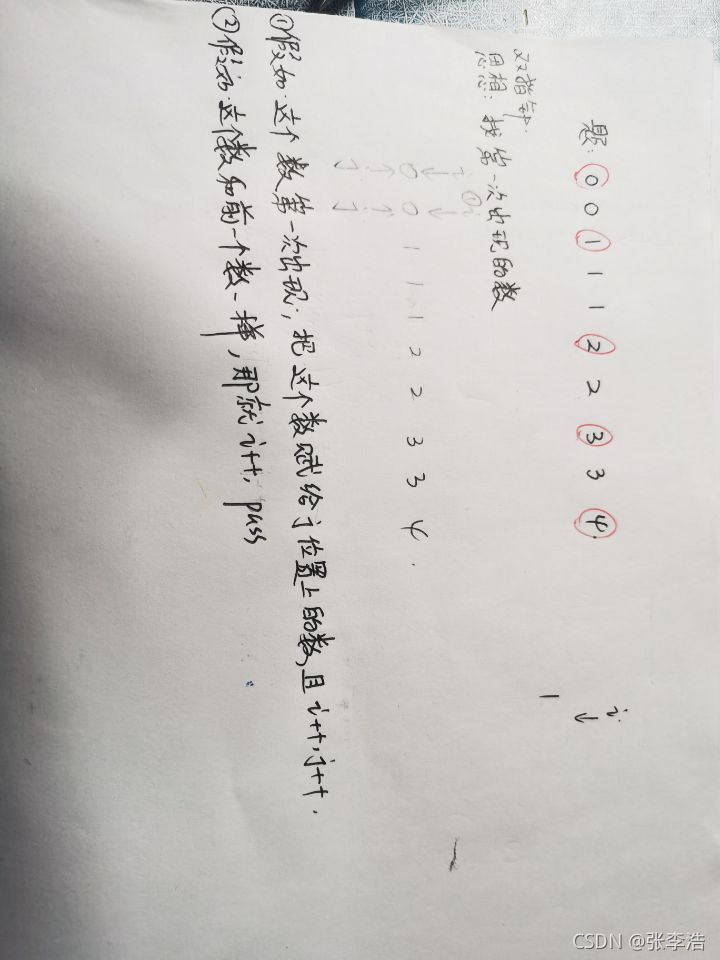 题: 0 0 1 1 1 2 2 3 3 4
双指针.
思想: 找第一次出现的数
i
↓
1
i
↓ ↓
0 0 1 1 1 2 2 3 3 4.
↑ ↑
j j
①假如:这个数第一次出现,把这个数赋给j位置上的数,且i++,j++.
②假如:这个数和前一个数一样,那就i++,pass
CSDN @张李浩